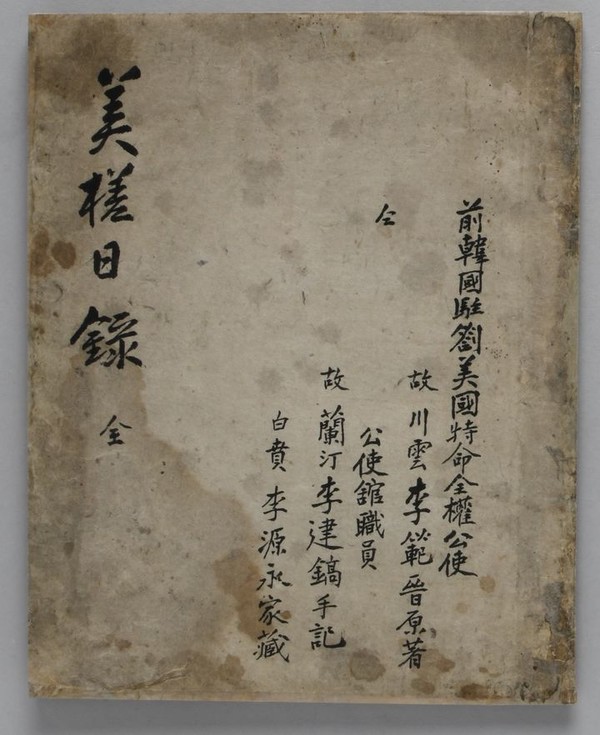 前韓國駐劄美國特命全權公使
故 川雲 李範晉原著
仝 公使舘職員
故 蘭汀 李建鎬手記
白賁 李源永家藏
美槎日錄 全